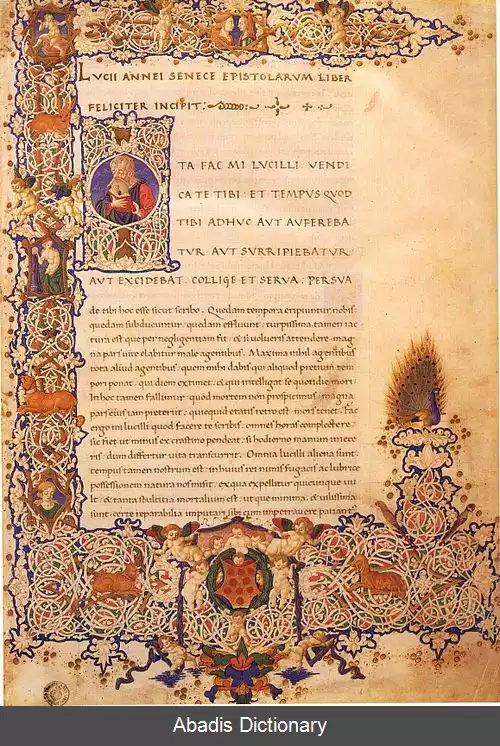 LVCII ANNEI SENECE EPISTOLARVM LIBER
FELICITER INCIPIT:
TA FAC MI LVCILLI VENDI
CA TE TIBI: ET TEMPVS QVOD
TIBI ADHVC AVT AVFEREBA
TVR AVT SVRRIPIEBATVR
AVT EXCIDEBAT. COLLIGE ET SERVA. PERSVA
de tibi hoc esse sicut scribo. Quedam tempora eripiuntur nobis:
quedam subducuntur: quedam effluunt: turpissima tamen iac
tura est que per negligentiam fit. & si volueris attendere: mag
na pars vite elabitur male agentibus. Maxima nihil agentibus
tota aliud agentibus. quem mihi dabis qui aliquod pretium tem
pori ponat: qui diem extimet: & qui intelligat se quotidie mori
In hoc tamen fallimur: quod mortem non prospicimus: magna
pars eius iam preteriit: quicquid etatis retro est: mors tenet. Fac
ergo mi lucilli quod facere te scribis: omnes horas complectere:
sic fiet ut minus ex crastino pendeat: si hodierno manum iniece
ris: dum differtur vita transcurrit. Omnia lucilli aliena sunt:
tempus tamen nostrum est: in huius rei unius fugacis ac lubrice
possessionem natura nos misit: ex qua expellit quicunque vu
lt: & tanta stultitia mortalium est: ut que minima & vilissima
sunt: certe reparabilia imputari sibi cum impetravere patiantur
Abadis Dictionary